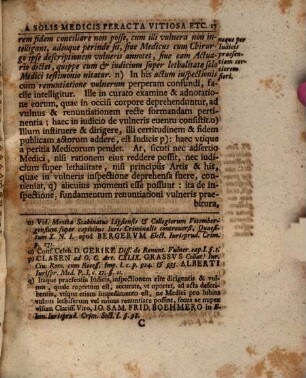 A SOLIS MEDICIS PERACTA VITIOSA ETC. 17
rem fidem conciliare non posse, cum illi vulnera non in-
telligant, adeoque perinde sit, sive Medicus cum Chirur-
go ipse descriptionem vulneris annotet, sive eam Actua-
rio dictet, quippe cum & judicium super lethalitate solo
Medici testimonio nitatur. n) In his actum inspectionis
cum renuntiatione vulnerum perperam confundi, fa-
cile intelligitur. Ille in curato examine & adnotatio-
ne eorum, quae in occisi corpore deprehenduntur, ad
vulnus & renuntiationem recte formandam perti-
nentia; haec in judicio de vulneris eventu consistit. o)
Illum instituere & dirigere, illi certitudinem & fidem
publicam actorum addere, est Judicis p): haec vtique
a peritia Medicorum pendet. Ar, sicut nec adsertio
Medici, nisi rationem eius reddere possit, nec judi-
cium super lethalitate, nisi principiis Artis & his,
quae in vulneris inspectione deprehensa fuere, con-
veniat, q) alicuius momenti esse possunt: ita de In-
spectione, fundamentum renuntiationis vulneris prae-
bitura,
neque per
Judicis
praesen-
tiam cer-
tiorem
fieri.
n) Vid. Moncta Scabinatus Lipsiensis & Collegiorum Vitember-
gensium super capitibus Iuris Criminalis controversis, Quaest.
X. N. I. apud BERGERVM Elect. Iurisprud. Crim.
o) Conf. Celeb. D. GERIKE Diss. de Renunt. Vulner. cap. I. §. 1.
p) CLASEN ad O. C. Art. CXLIX. GRASSVS Collat. Iur.
Civ. Rom. cum Recess. Imp. l. c. p. 524. & 525. ALBERTI
Iurispr. Med. P. I. c.
beritis, vtique etiam
vulnus lethiferum vel minus renuntiare possint, secus ac nupe
visum Clariss. Viro, IO. SAM. FRID. BOEHMERO in E-
lem. Iurisprud. Crim. Sect. I. §. 91.
C